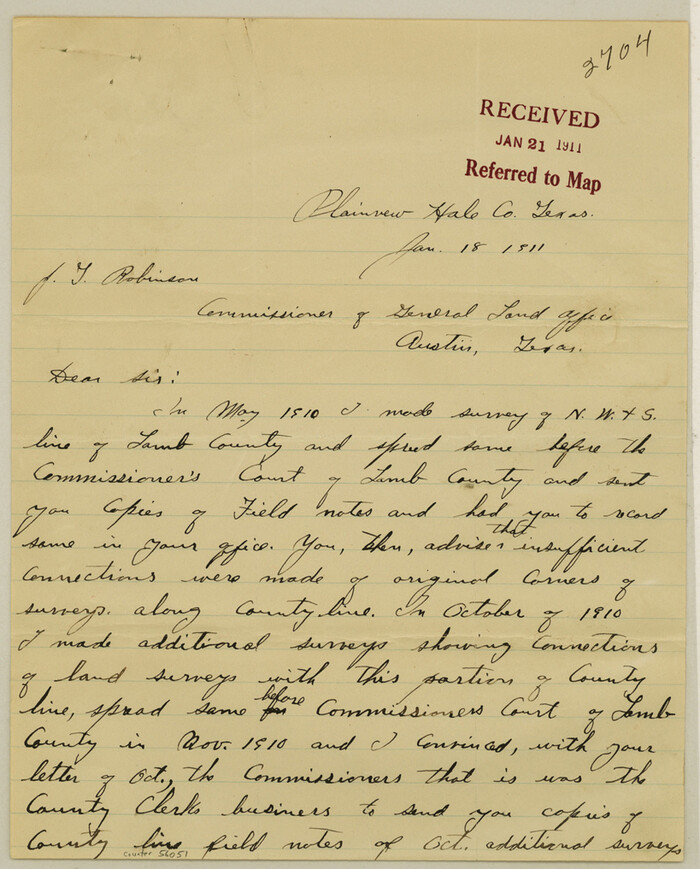 2704
RECEIVED
JAN 21 1911
Referred to Map
Plainview Hale Co. Texas.
Jan. 18 1911
J. T. Robinson
Commissioner of General Land Office
Austin, Texas.
Dear Sir:
In May 1910 I made survey of N. W. & S.
line of Lamb County and spred same before the
Commissioner's Court of Lamb County and sent
you Copies of Field notes and had you to record
same in your office. You, then, advised that insufficient
Connections were made of original Corners of
surveys. along County line. In October of 1910
I made additional surveys showing Connections
of land surveys with this portion of County
line, spread same before Commissioners Court of Lamb
County in Nov. 1910 and I Convinced, with your
letter of Oct., the Commissioners that is was the
County Clerks business to send you copies of
County line field notes of Oct. additional surveys
counter 56051